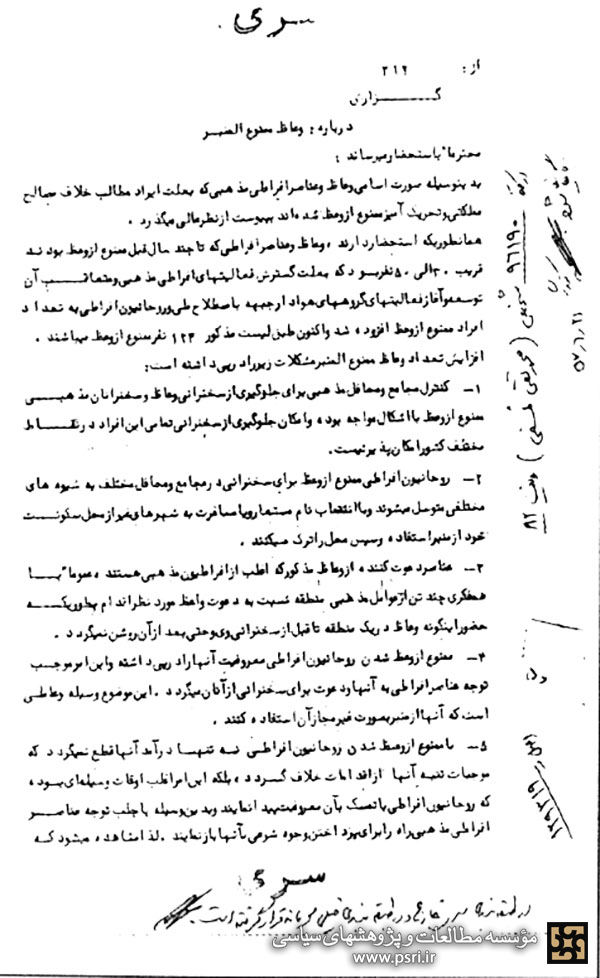 سری
از : ۳۱۲
گـــــزارش
درباره : وعاظ ممنوع المنبر
محترماً باستحضار میرساند :
بدینوسیله صورت اسامی وعاظ و عناصر افراطی مذهبی که بعلت ایراد مطالب خلاف مصالح
مملکتی و تحریک آمیز ممنوع از وعظ شده اند بپیوست از نظر عالی میگذرد .
همانطور یکه استحضار دارند ، وعاظ و عناصر افراطی که تا چند سال قبل ممنوع از وعظ بودند
قریب ۳۰ الی ۵۰ نفر بود که بعلت گسترش فعالیتهای افراطی مذهبی و متعاقب آن
توسعه و آغاز فعالیتهای گروههای هوادار جبهه باصطلاح ملی و روحانیون افراطی به تعداد
افراد ممنوع از وعظ افزوده شد و اکنون طبق لیست مذکور ۱۲۳ نفر ممنوع از وعظ میباشند .
افزایش تعداد وعاظ ممنوع المنبر مشکلات زیر را در پی داشته است :
۱ـ کنترل مجامع و محافل مذهبی برای جلوگیری از سخنرانی وعاظ و سخنرانان مذهبـی
ممنوع از وعظ با اشکال مواجه بوده و امکان جلوگیری از سخنرانی تمامی این افراد در نقـاط
مختلف کشور امکان پذیر نیست .
۲ـ روحانیون افراطی ممنوع از وعظ برای سخنرانی در مجامع و محافل مختلف به شیوه های
مختلفی متوسل میشوند و با انتخاب نام مستعار و یا مسافرت به شهرهای غیر از محل سکونـت
خود از منبر استفاده و سپس محل را ترک میکنند .
۳ـ عناصر دعوت کننده از وعاظ مذکور که اغلب از افراطیون مذهبی هستند ، عموماً بـا
همفکری چند تن از عوامل مذهبی منطقه نسبت به دعوت واعظ مورد نظر اقدام بطوریکـه
حضور اینگونه وعاظ در یک منطقه تا قبل از سخنرانی وی و حتی بعد از آن روشن نمیگردد .
۴ـ ممنوع از وعظ شدن روحانیون افراطی معروفیت آنها را در پی داشته و این امر موجب
توجه عناصر افراطی به آنها و دعوت برای سخنرانی از آنان میگردد . این موضوع وسیله وعاظی
است که آنها از منبر بصورت غیر مجاز آن استفاده کنند .
۵ـ با ممنوع از وعظ شدن روحانیون افراطی نه تنهـا درآمد آنها قطع نمیگردد که
موجبات تنبه آنها از اقدامات خلاف گردد ، بلکه این امر اغلب اوقات وسیله ای بوده
که روحانیون افراطی با تمسک بآن معروفیت پیدا نمایند و بدین وسیله با جلب توجه عناصـر
افراطی مذهبی راه را برای پرداختن وجوه شرعی بآنها باز نمایند . لذا مشاهده میشود که
سری
۹۶۱۹۰
(محمد تقی فلسفی)
ردیف ۸۲
۵۷/۶/۲۱
مؤسسه مطالعات و پژوهشهای سیاسی
www.psri.ir